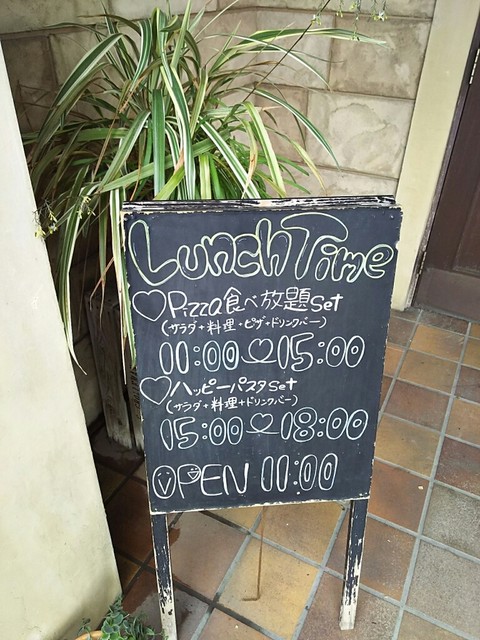 Lunch Time
♡Pizza食べ放題set
(サラダ+料理+ピザ+ドリンクバー)
11:00~♡~15:00
♡ハッピーパスタset
(サラダ+料理+ドリンクバー)
15:00~♡~18:00
OPEN 11:00